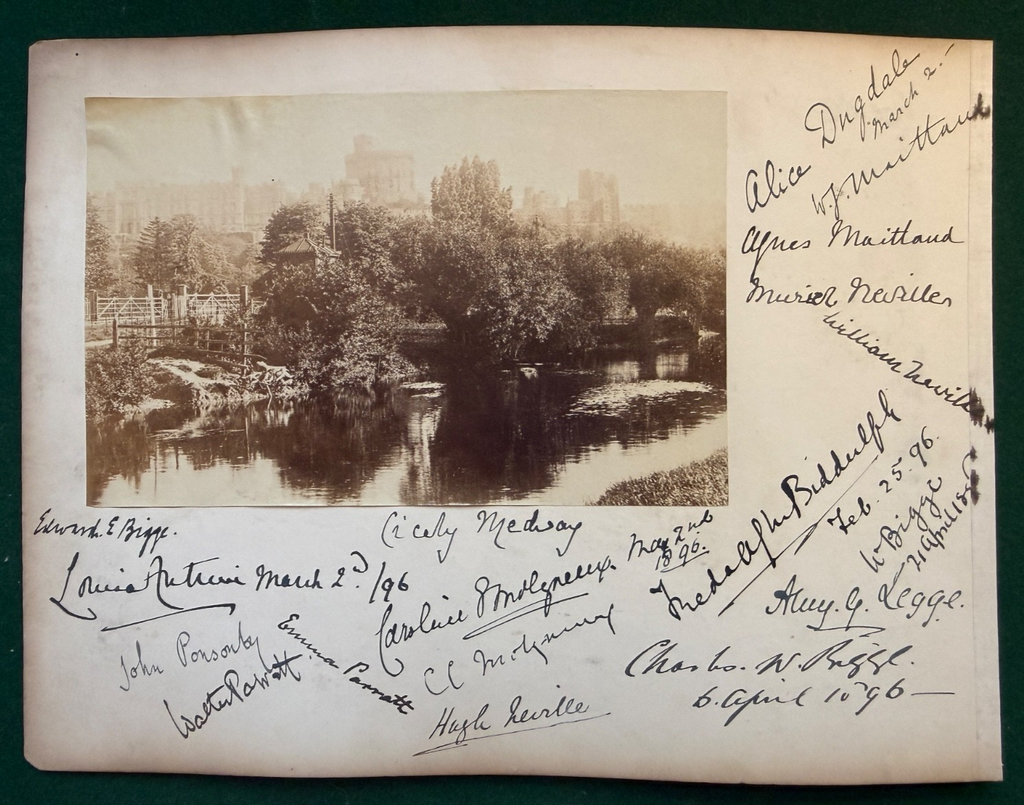 Alice Dugdale
March 2.-
W. J. Maitland
Agnes Maitland
Muriel Neville
William Neville
Biddulph
Feb. 25. 96.
W Bigge
21 April 1896
Edward. E Bigge.
Cicely Medway
Louisa Antrim March 2d /96
Caroline Molyneux. May 2nd
1896.
Amy. G. Legge.
John Ponsonby
Emma
Walter
Molyneux
Charles. W. Bigge.
6. April 1896-
Hugh Neville